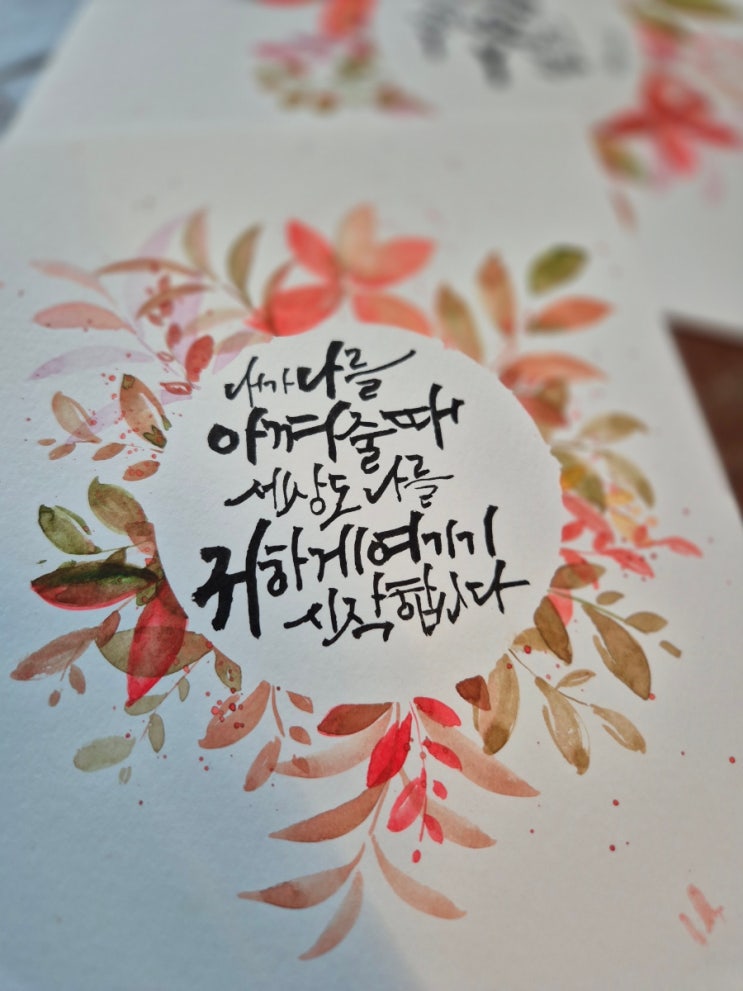 내가 나를
아껴줄 때
세상도 나를
귀하게 여기기
시작합니다